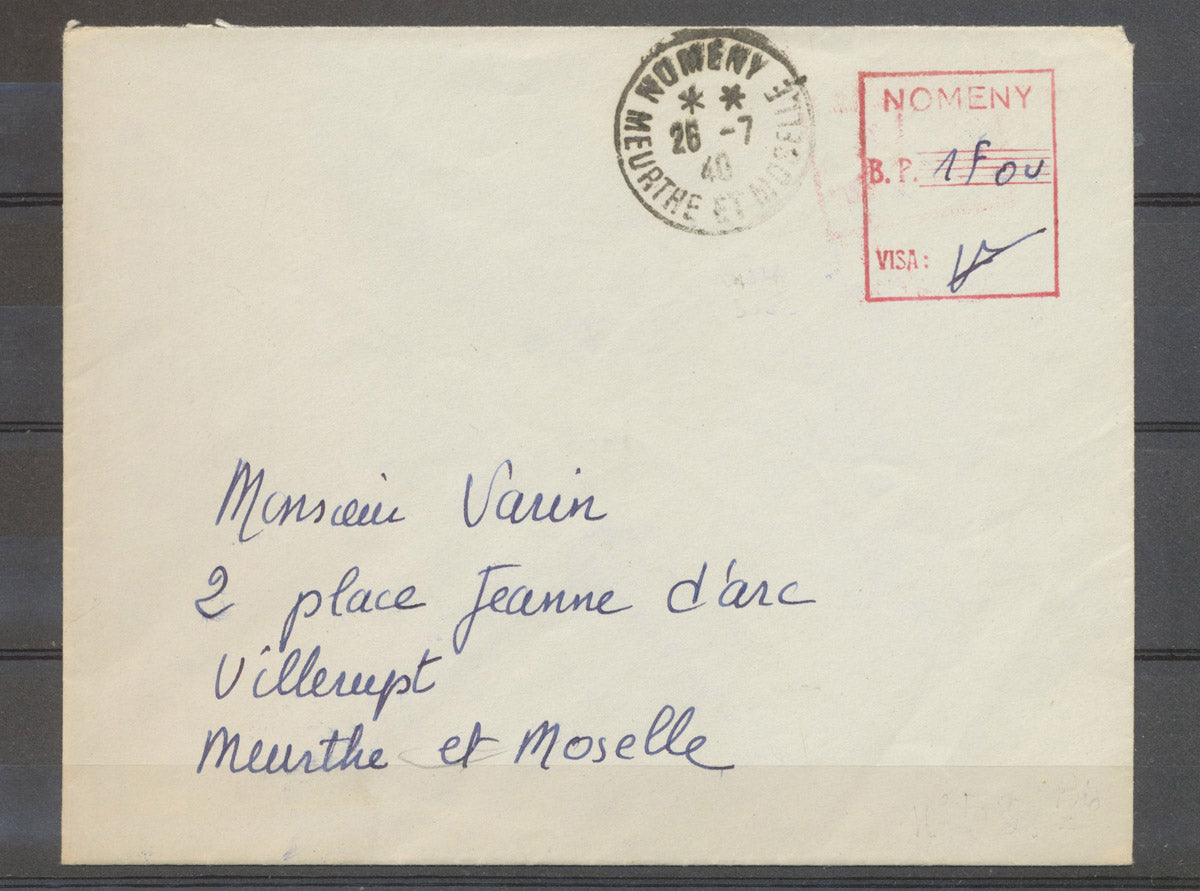 NOMENY
* *
26 -7
40
MEURTHE ET MOSELLE
NOMENY
B. P. 1F00
VISA :
Monsieur Varin
2 place Jeanne d'arc
Villerupt
Meurthe et Moselle